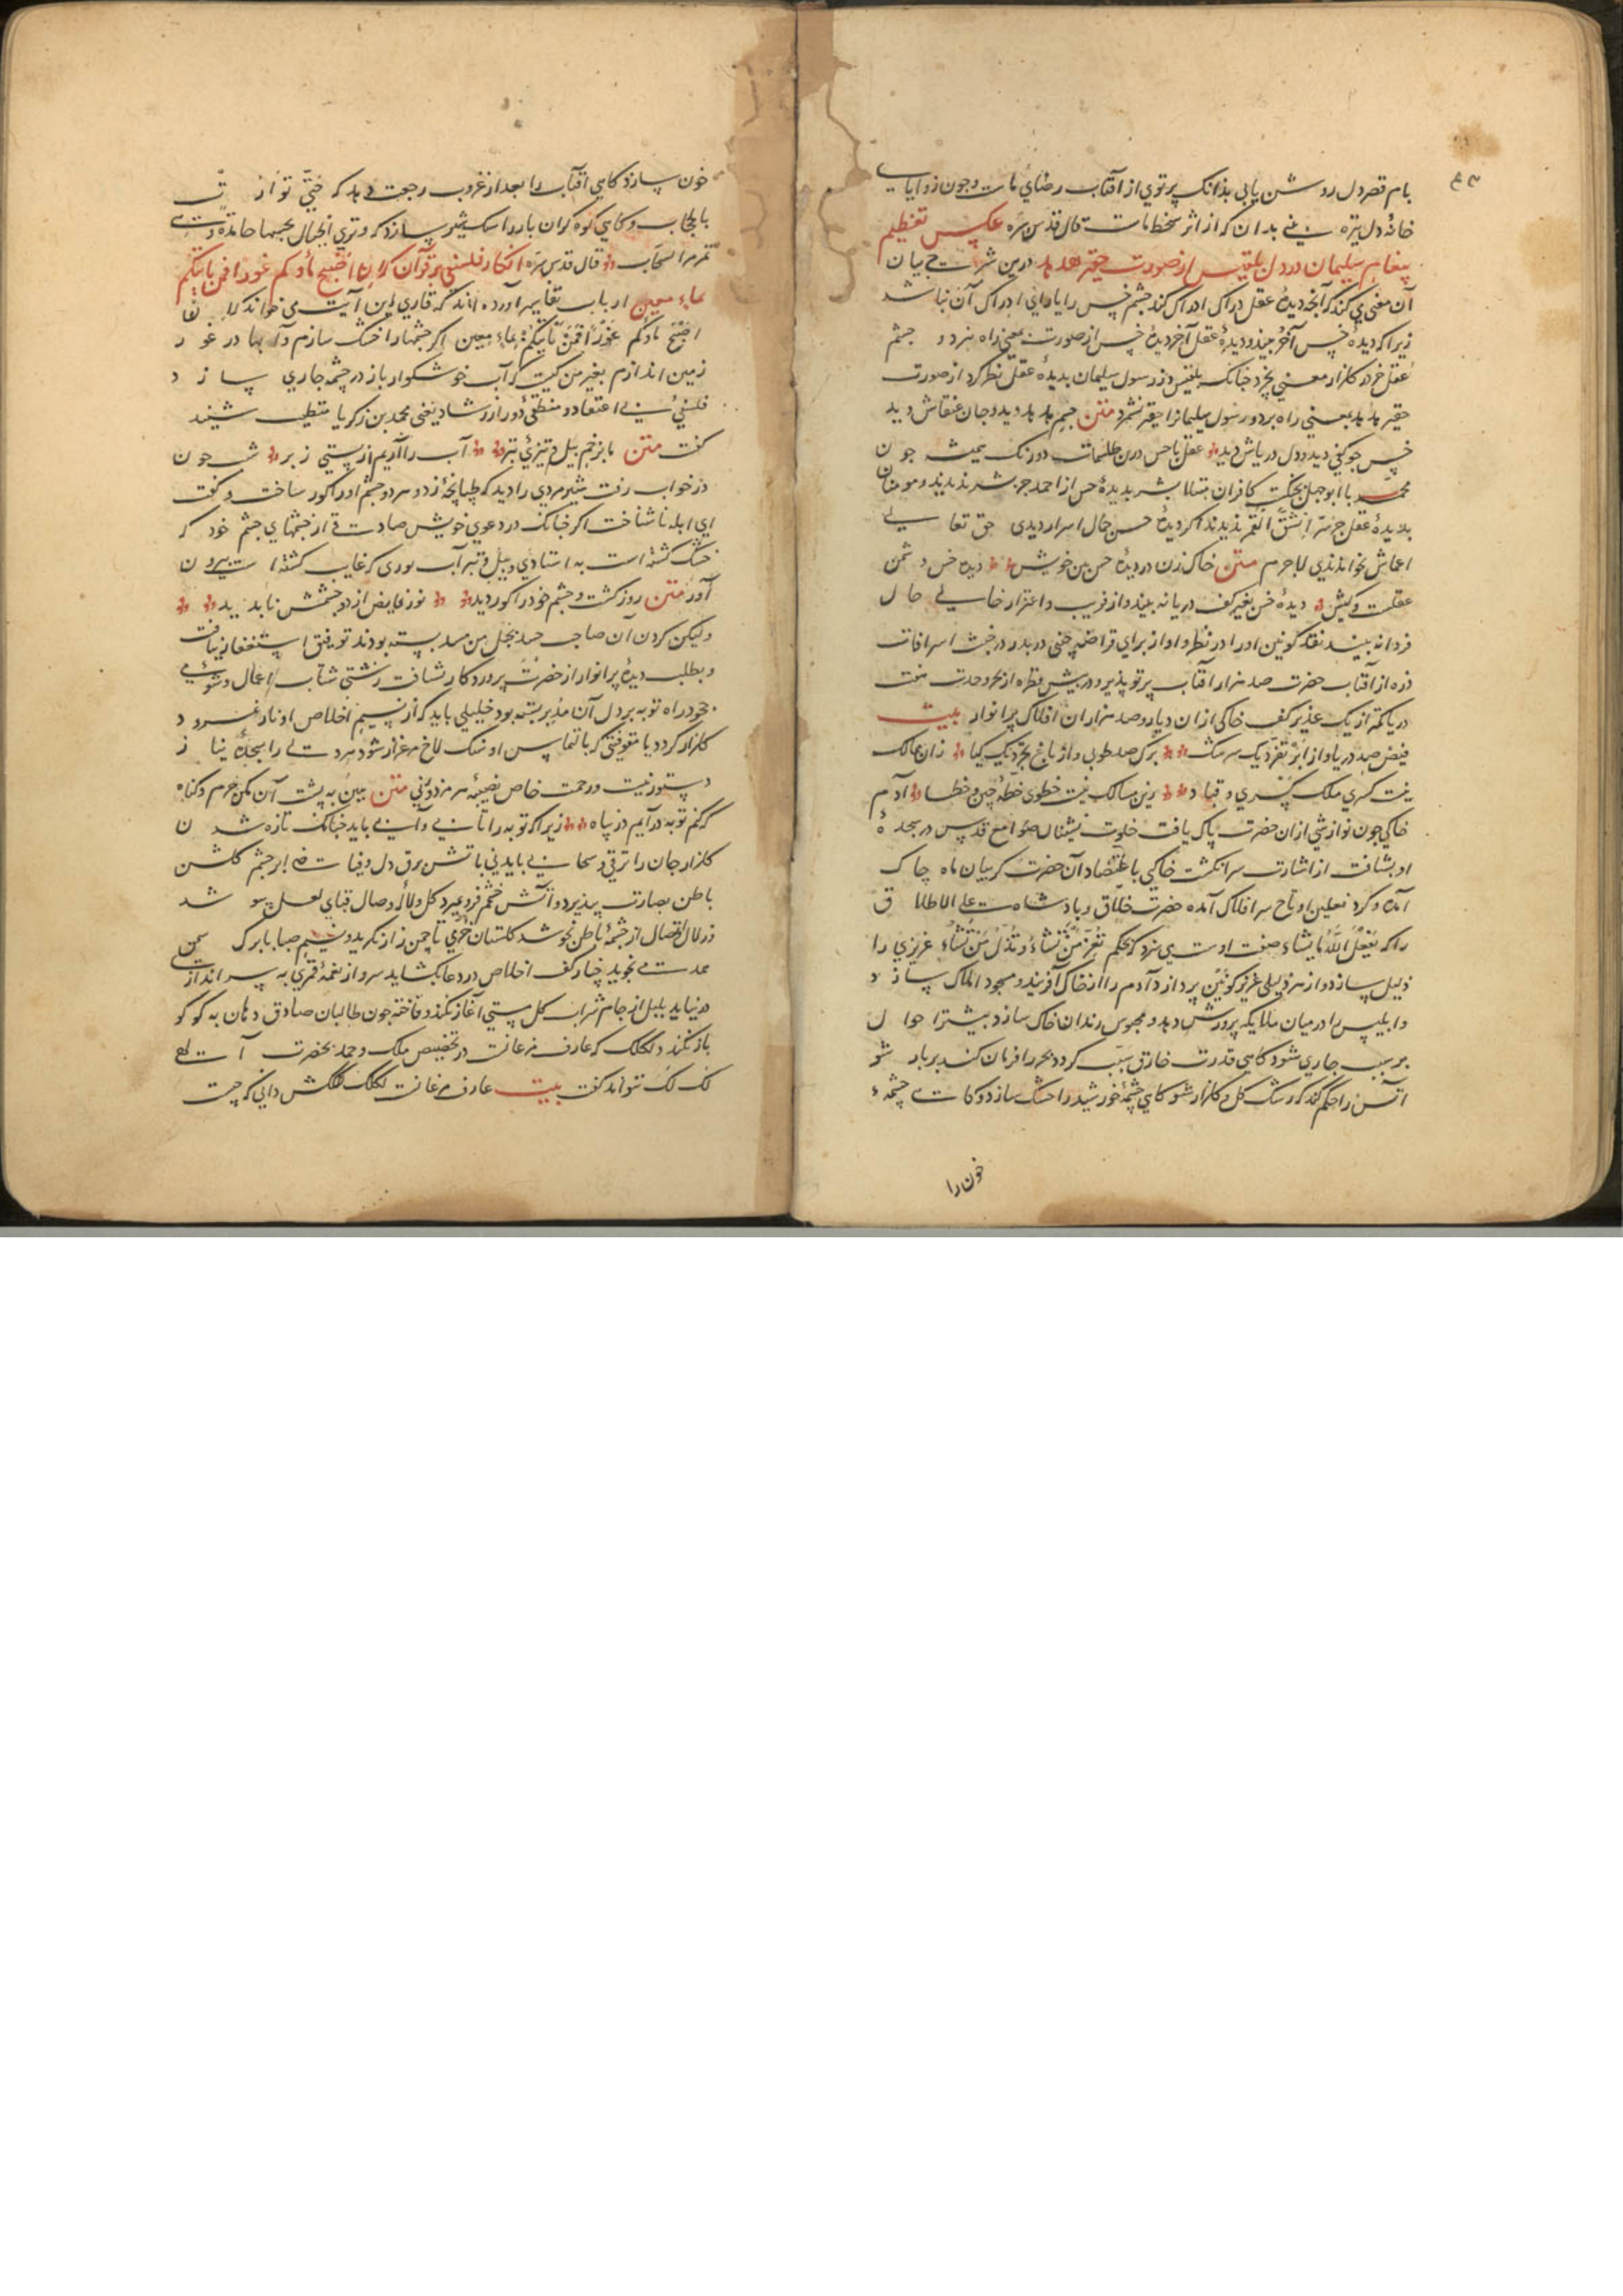 بام قصر دل روشن یابی بدانک پرتوی از آفتاب رضای ماست و چون زوایای
خانهٔ دل تیره بینی بدان که از اثر سخط ماست قال قدس سره عکس تعظیم
پیغام سلیمان در دل بلقیس از صورت حقیر هدهد درین شرت بیان
آن معنی می کند که آنچه دیدهٔ عقل دراک ادراک کند چشم خس را یارای ادراک آن نباشد
زیرا که دیدهٔ حس آخر بیند و دیدهٔ عقل آخر دیدهٔ حس از صورت بمعنی راه نبرد و چشم
عقل جز در کلزار معنی نچرد چنانک بلقیس در رسول سلیمان بدیدهٔ عقل نظر کرد از صورت
حقیر هدهد بمعنی راه برد و رسول سلیمانرا حقیر نشمرد متن جسم هدهد دید و جان عنقاش دید
حس چو کفی دید و دل دریاش دید عقل با حس درین طلسمات دو رنک همیشه چون
محمد با ابوجهل بجنگ کافران مبتلا بشر بدیدهٔ حس از احمد جز بشر ندیدند و مومنان
بدیدهٔ عقل جز سر انشق القمر ندیدند اکر دیدهٔ حس جمال اسرار دیدی حق تعالی
اعماش نخواندی لاجرم متن خاک زن در دیدهٔ حس بین خویش دیدهٔ حس دشمن
عقلست و کیش دیدهٔ حس بغیر کف دریا نه بیند و از فریب و اغترار خالی حال
فردا نه بیند نقد کونین او را در نظر و او از برای قراضه چنی در بدر
ذره از آفتاب حضرت صد هزار آفتاب پرتو پذیر و در پیش قطره از بحر وحدت هفت
دریا کمتر از یک غدیر کف خاکی از ان دیار و صد هزاران افلاک پر انوار بیت
فیض صد دریا و از ابر تو یک سرشک برک صد طوبی و از باغ تو یک کیا زان ممالک
نیست کسری ملک کسری و قباد زین مسالک نیست خطوی خطهٔ چین و خطا آدم
خاکی چون نوازشی از ان حضرت پاک یافت خلوت نشینان صوامع قدس در سجدهٔ
او بشتافت از اشارت سر انکشت خاکی باعتضاد آن حضرت کریبان ماه چاک
آمده و کرد نعلین او تاج سر افلاک آمده حضرت خلاق و بادشاه علی الاطلاق
را که یفعل الله ما یشاء صفت اوست می سزد که بحکم تعز من تشاء و تذل من تشاء عزیزی را
ذلیل سازد و از هر ذلیلی عزیز کونین پردازد آدم را از خاک آفریند و مسجود املاک سازد
و ابلیس را در میان ملایکه پرورش دهد و محبوس زندان خاک سازد بیشتر احوال
بر سبب جاری شود کاهی قدرت خارق سبب کردد بحر را فرمان کند پر بار شو
آتش را حکم کند که رشک کل و کلزار شو کاهی چشمهٔ خورشید را خشک سازد و کاهی چشمهٔ
خون را
خون سازد کاهی افتاب را بعد از غروب رجعت دهد که حتی توارت
بالحجاب و کاهی کوه کران بار را سبک سیر سازد که و تری الجبال تحسبها جامدة و هی
تمر مر السحاب قال قدس سره انکار فلسفی بر قرآن کردن ان اصبح ماءکم غورا فمن یاتیکم
بماء معین ارباب تفاسیر آورده اند که قاری این آیت می خواند که ان
اصبح ماؤکم غورا فمن یاتیکم بماء معین اکر چشمها را خشک سازم و آبها در غور
زمین اندازم بغیر من کیست که آب خوشکوار باز در چشمه جاری سازد
فلسفی بی اعتقاد و منطقی دور از رشاد یعنی محمد بن زکریا متطبب شنید
کفت متن ما بزخم بیل و تیزی تبر آب را آریم از پستی زبر شب چون
در خواب رفت شیر مردی را دید که طپانچهٔ زد و هر دو چشم او را کور ساخت و کفت
ای ابله ناشناخت اکر چنانک در دعوی خویش صادقی از چشمهای چشم خود که
خشک کشته است به استادی و بیل و تبر آب نوری که غایب کشته است بیرون
آور متن روز کشت و چشم خود را کور دید نور فایض از دو چشمش نابدید
ولیکن کردن آن صاحب حسد بحبل من مسد بسته بودند توفیق استغفار نیافت
و بطلب دیدهٔ پر انوار از حضرت پروردکار نشتافت زشتی اعمال و شومی
جحود راه توبه بر دل آن مدبر بسته بود خلیلی باید که از نسیم اخلاص او نار نمرود
کلزار کردد یا مقوقسی که بالتماس او سنک لاخ مرغزار شود هر دستی را سجدهٔ نیاز
دستور نیست و رحمت خاص نصیبهٔ هر مزدور نی متن هین به پشت آن مکن جرم و کناه
که کنم توبه در آیم در پناه زیرا که توبه را تابی و آبی باید چنانک تازه شدن
کلزار جان را برقی و سحابی باید نی باتش برق دل و فیاضی ابر چشم کلشن
باطن نضارت پذیرد و آتش خشم فرو میرد کل و لالهٔ وصال قبای لعل پوشد
زلال اتصال از چشمهٔ باطن نجوشد کلستان خرمی تا چمن راز نکرید و نسیم صبا با برک سمن
عهدی نجوید چنار کف اخلاص در دعا بکشاید سرو از نغمهٔ قمری به سر اندازی
در نیاید بلبل از جام شراب کل مستی آغاز نکند و فاخته چون طالبان صادق دهان به کو کو
باز نکند و لکلک که عارف مرغانست در تخصیص ملک و حمد بحضرت آلهی
لک لک نتواند کفت بیت عارف مرغانست لکلک لکلکش دانی که چیست